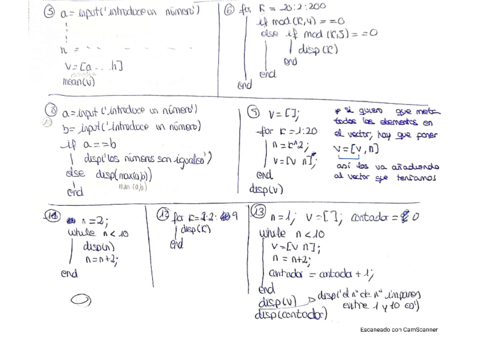 ⑤ a = input('introduce un número')
n =
v = [a ... h]
mean(v)
⑥ for k = 20:2:200
if mod(k,4) == 0
else if mod(k,3) == 0
disp(k)
end
end
end
a = input('introduce un número')
b = input('introduce un número)
if a == b
disp('los números son iguales')
else disp(max(a,b))
end
v = [];
for k = 1:20
n = k^2;
v = [v n];
end
disp(v)
* si quiero que meta
todos los elementos en
el vector, hay que poner
v = [v, n]
así los va añadiendo
al vector que teníamos
n = 2;
while n < 10
disp(n)
n = n+2;
end
for k = 1:2:9
disp(k)
end
⑬ n = 1; v = []; contador = 0
while n < 10
v = [v n];
n = n+2;
contador = contador + 1;
end
disp(v)
disp('el nº de nº impares
entre 1 y 10 es')
disp(contador)
Escaneado con CamScanner